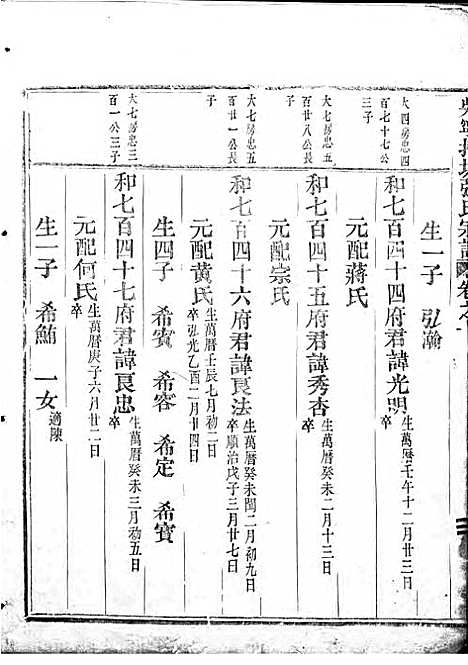 生一子 弘瀚
大四房忠四百七十七公三子
和七百四十四府君諱光明 生萬曆壬午十二月廿三日 卒
元配蔣氏
大七房忠五百廿八公長子
和七百四十五府君諱秀杏 生萬曆癸未二月十三日 卒
元配宗氏
大七房忠五百廿一公長子
和七百四十六府君諱良法 生萬曆癸未閏二月初九日 卒順治戊子三月廿七日
元配黄氏 生萬曆壬辰七月初二日 卒弘光乙酉二月廿四日
生四子 希賓 希容 希定 希寳
大七房忠三百一公三子
和七百四十七府君諱良忠 生萬曆癸未三月初五日 卒
元配何氏 生萬曆庚子六月廿二日 卒
生一子 希鮪 一女 適陳